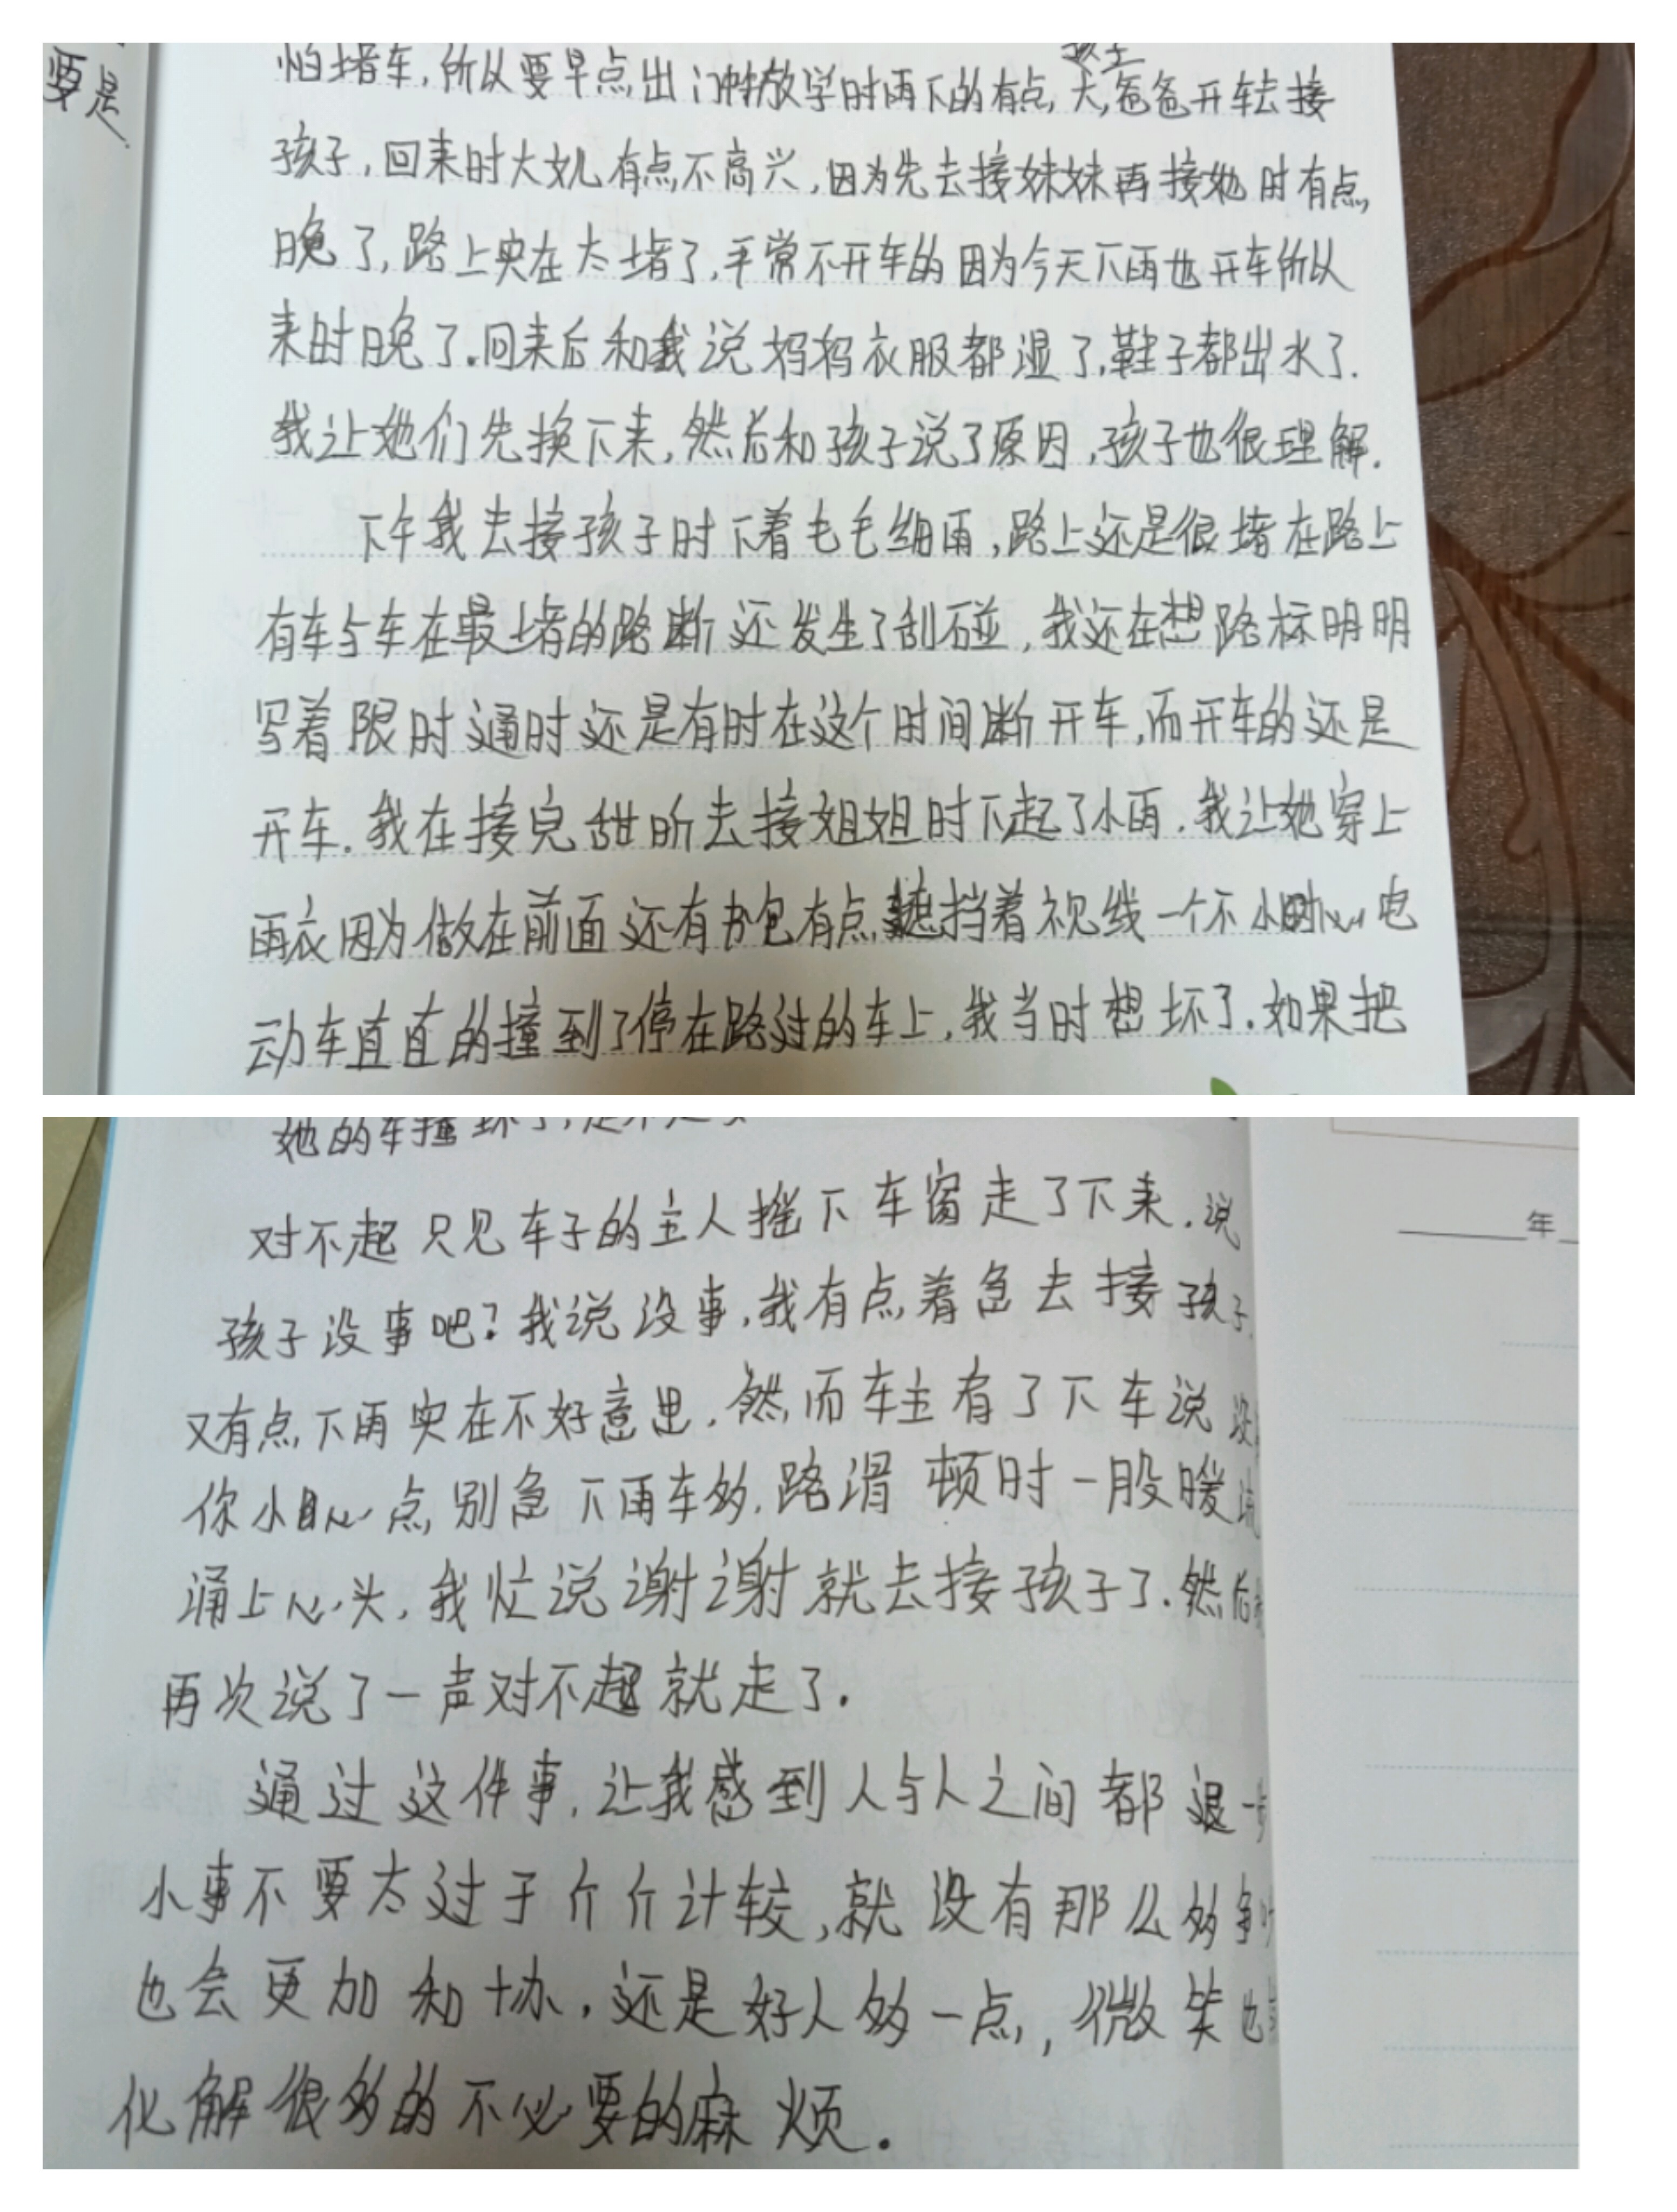 要是
孩子
怕堵车,所以要早点出门放学时雨下的有点大,爸爸开车去接
孩子,回来时大女儿有点不高兴,因为先去接妹妹再接她时有点
晚了,路上实在太堵了,平常不开车的因为今天下雨也开车所以
来时晚了.回来后和我说妈妈衣服都湿了,鞋子都出水了.
我让她们先换下来,然后和孩子说了原因,孩子也很理解.
下午我去接孩子时下着毛毛细雨,路上还是很堵在路上
有车与车在最堵的路断还发生了刮碰,我还在想路标明明
写着限时通时还是有时在这个时间断开车,而开车的还是
开车.我在接完甜昕去接姐姐时下起了小雨.我让她穿上
雨衣因为做在前面还有书包有点遮挡着视线一个不小心电
动车直直的撞到了停在路过的车上,我当时想坏了.如果把
她的车撞坏了,是不是
对不起只见车子的主人摇下车窗走了下来.说
孩子没事吧?我说没事,我有点着急去接孩子.
又有点下雨实在不好意思.然而车主有了下车说没
你小心点别急下雨车多.路滑顿时一股暖流
涌上心头,我忙说谢谢就去接孩子了.然后
再次说了一声对不起就走了.
通过这件事,让我感到人与人之间都退一步
小事不要太过于斤斤计较,就没有那么多争吵
也会更加和协,还是好人多一点,微笑也
化解很多的不必要的麻烦.
年